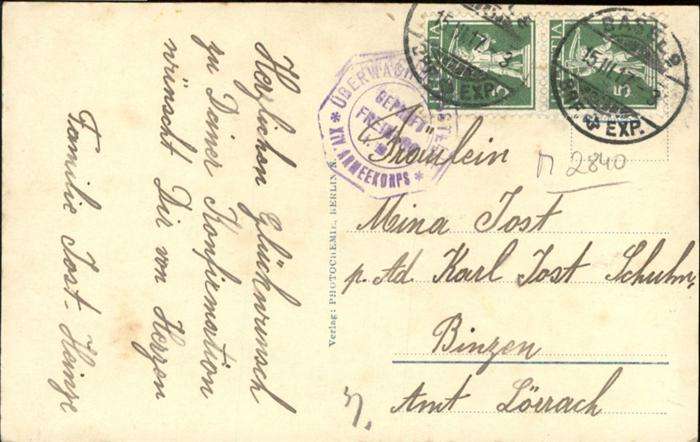 Herzlichen Glückwunsch
zu Deiner Konfirmation
wünscht Dir von Herzen
Familie Jost-Heinze
Verlag: PHOTOCHEMIE, BERLIN
ÜBERWACHUNGSSTELLE
GEPRÜFT
XIV ARMEEKORPS
HELVETIA
5
5
15.III.17.-3
EXP.
BASEL 2
15.III.17.-3
EXP.
Fräulein
Mina Jost
p. Ad Karl Jost Schuhm.
Binzen
Amt Lörrach
2840